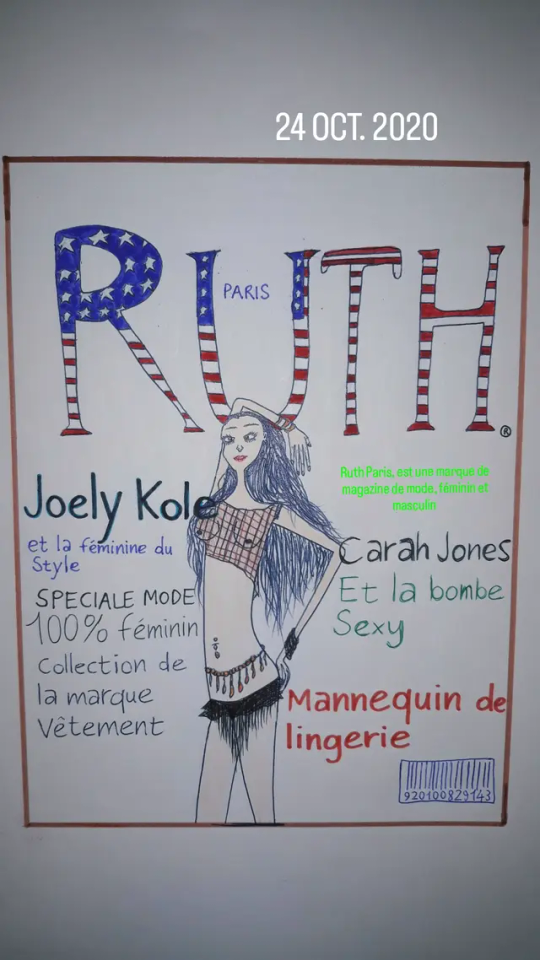 24 OCT. 2020
RUTH
PARIS
®
Ruth Paris, est une marque de
magazine de mode, féminin et
masculin
Joely Kole
et la féminine du
Style
SPECIALE MODE
100% féminin
Collection de
la marque
Vêtement
Carah Jones
Et la bombe
Sexy
Mannequin de
lingerie
920100829143